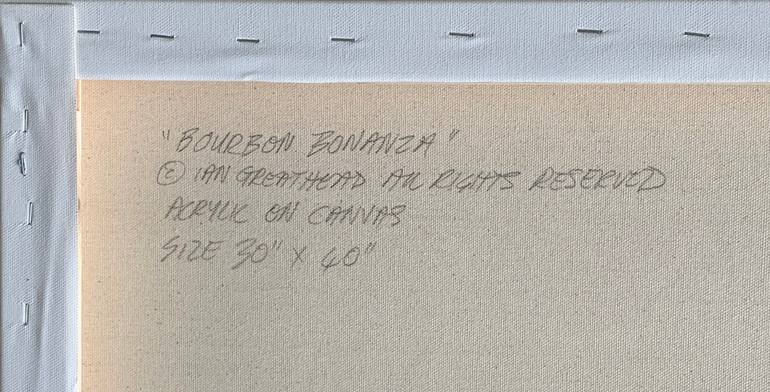 "BOURBON BONANZA"
© IAN GREATHEAD ALL RIGHTS RESERVED
ACRYLIC ON CANVAS
SIZE 30" X 40"